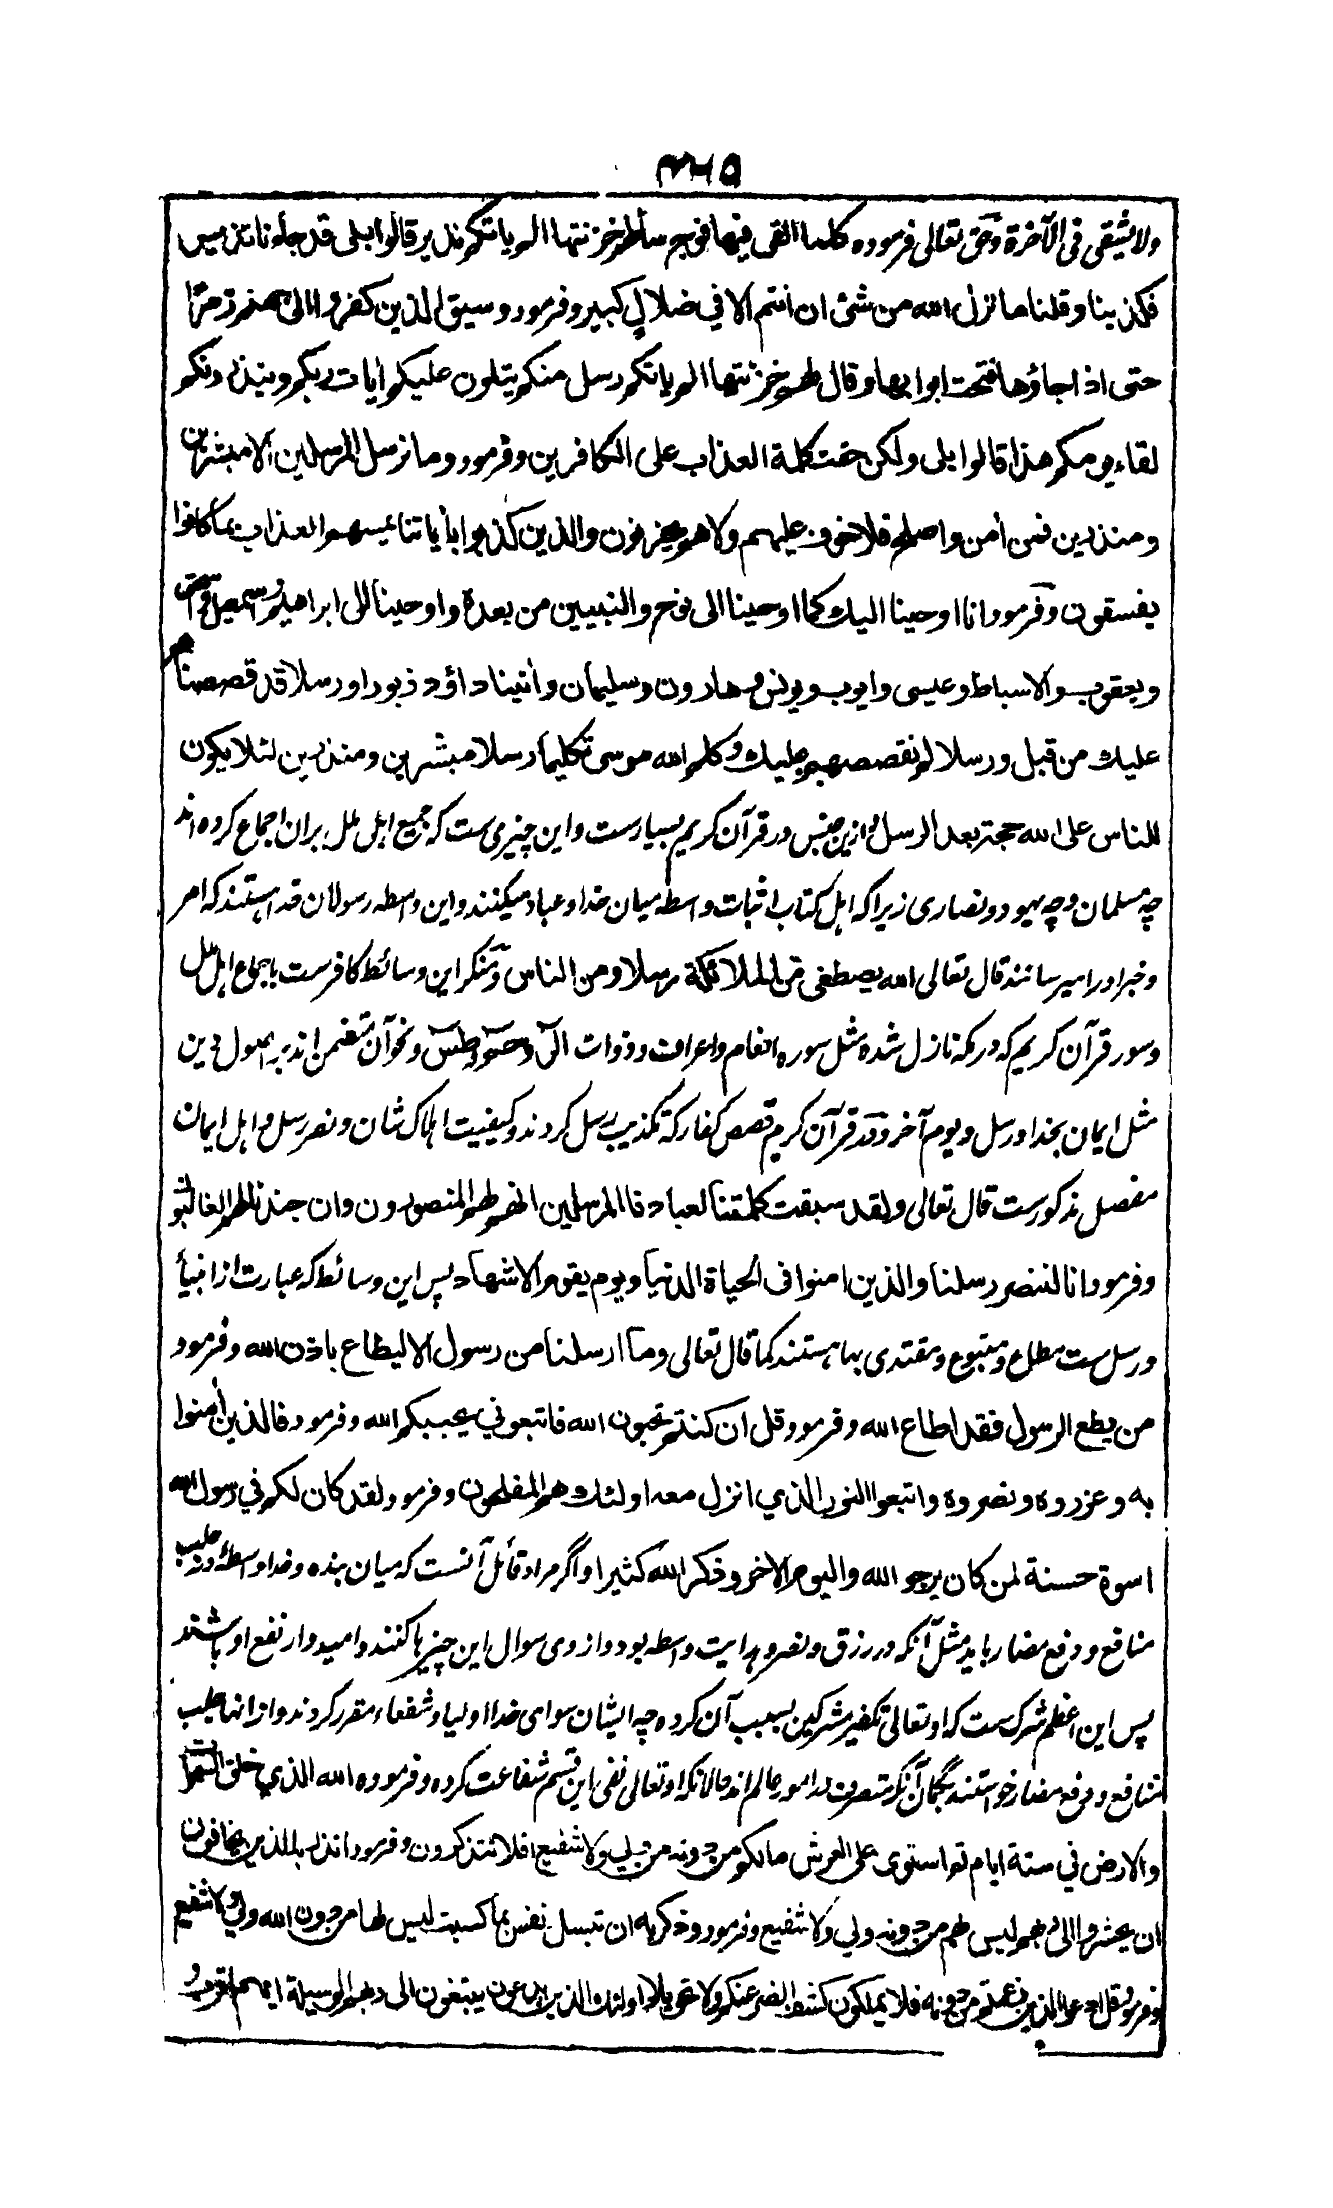 ۴۶۵
ولا یشقی فی الآخرة وحق تعالی فرموده کلما القی فیها فوج سألهم خزنتها الم یاتکم نذیر قالوا بلی قد جاءنا نذیر
فکذبنا وقلنا ما نزل الله من شئ ان انتم الا في ضلال کبیر وفرمود وسیق الذین کفروا الی جهنم زمرًا
حتی اذا جاؤها فتحت ابوابها وقال لهم خزنتها الم یاتکم رسل منکم یتلون علیکم ایات ربکم وینذرونکم
لقاء یومکم هذا قالوا بلی ولکن حقت کلمة العذاب علی الکافرین وفرمود وما نرسل المرسلین الا مبشرین
ومنذرین فمن أمن واصلح فلا خوف علیهم ولا هم یحزنون والذین کذبوا بأیاتنا یمسهم العذاب بما کانوا
یفسقون وفرمود انا اوحینا الیك کما اوحینا الی نوح والنبیین من بعده واوحینا الی ابراهیم واسمعیل واسحق
ویعقوب والاسباط وعیسی وایوب ویونس وهارون وسلیمان وأتینا داؤد زبورا ورسلا قد قصصناهم
علیك من قبل ورسلا لم نقصصهم علیك وکلم الله موسی تکلیما رسلا مبشرین ومنذرین لئلا یکون
للناس علی الله حجة بعد الرسل وازین جنس در قرآن کریم بسیارست واین چیزی ست که جمیع اهل ملل بران اجماع کرده اند
چه مسلمان وچه یهود ونصاری زیرا که اهل کتاب اثبات واسطه میان خدا وعباد میکنند واین واسطه رسولان خدا هستند که امر
وخبر اورا میرسانند قال تعالی الله یصطفی من الملائکة رسلا ومن الناس ومنکر این وسائط کافرست باجماع اهل ملل
وسور قرآن کریم که در مکه نازل شده مثل سوره انعام واعراف وذوات الر وحم وطس ونحو آن متضمن اند به اصول دین
مثل ایمان بخدا ورسل ویوم آخر ودر قرآن کریم قصص کفار که تکذیب رسل کردند وکیفیت اهلاک شان ونصر رسل واهل ایمان
مفصل مذکورست قال تعالی ولقد سبقت کلمتنا لعبادنا المرسلین انهم لهم المنصورون وان جندنا لهم الغالبون
وفرمود انا لننصر رسلنا والذین امنوا فی الحیاة الدنیا ویوم یقوم الاشهاد پس این وسائط که عبارت از انبیأ
ورسل ست مطاع ومتبوع ومقتدی بها هستند کما قال تعالی وما ارسلنا من رسول الا لیطاع باذن الله وفرمود
من یطع الرسول فقد اطاع الله وفرمود قل ان کنتم تحبون الله فاتبعوني یحببکم الله وفرمود فالذین أمنوا
به وعزروه ونصروه واتبعوا النور الذي انزل معه اولئك هم المفلحون وفرمود لقد کان لکم في رسول الله
اسوة حسنة لمن کان یرجو الله والیوم الاخر وذکر الله کثیرا واگر مراد قائل آنست که میان بنده وخدا واسطهٔ در طلب
منافع ودفع مضار باید مثل آنکه در رزق ونصر وهدایت واسطه بود واز وی سوال این چیزها کنند وامیدوار نفع او باشند
پس این اعظم شرک ست که او تعالی تکفیر مشرکین بسبب آن کرده چه ایشان سوای خدا اولیا وشفعاء مقرر کردند واز انها طلب
منافع ودفع مضار خواستند بگمان آنکه متصرف در امور عالم اند حالانکه او تعالی نفی این قسم شفاعت کرده وفرموده الله الذي خلق السموات
والارض في ستة ایام ثم استوی علی العرش مالکم من دونه من ولي ولا شفیع افلا تتذکرون وفرمود انذر به الذین یخافون
ان یحشروا الی ربهم لیس لهم من دونه ولي ولا شفیع وفرمود وذکر به ان تبسل نفس بما کسبت لیس لها من دون الله ولي ولا شفیع
وفرمود قل ادعوا الذین زعمتم من دونه فلا یملکون کشف الضر عنکم ولا تحویلا اولئك الذین یدعون یبتغون الی ربهم الوسیلة ایهم اقرب و